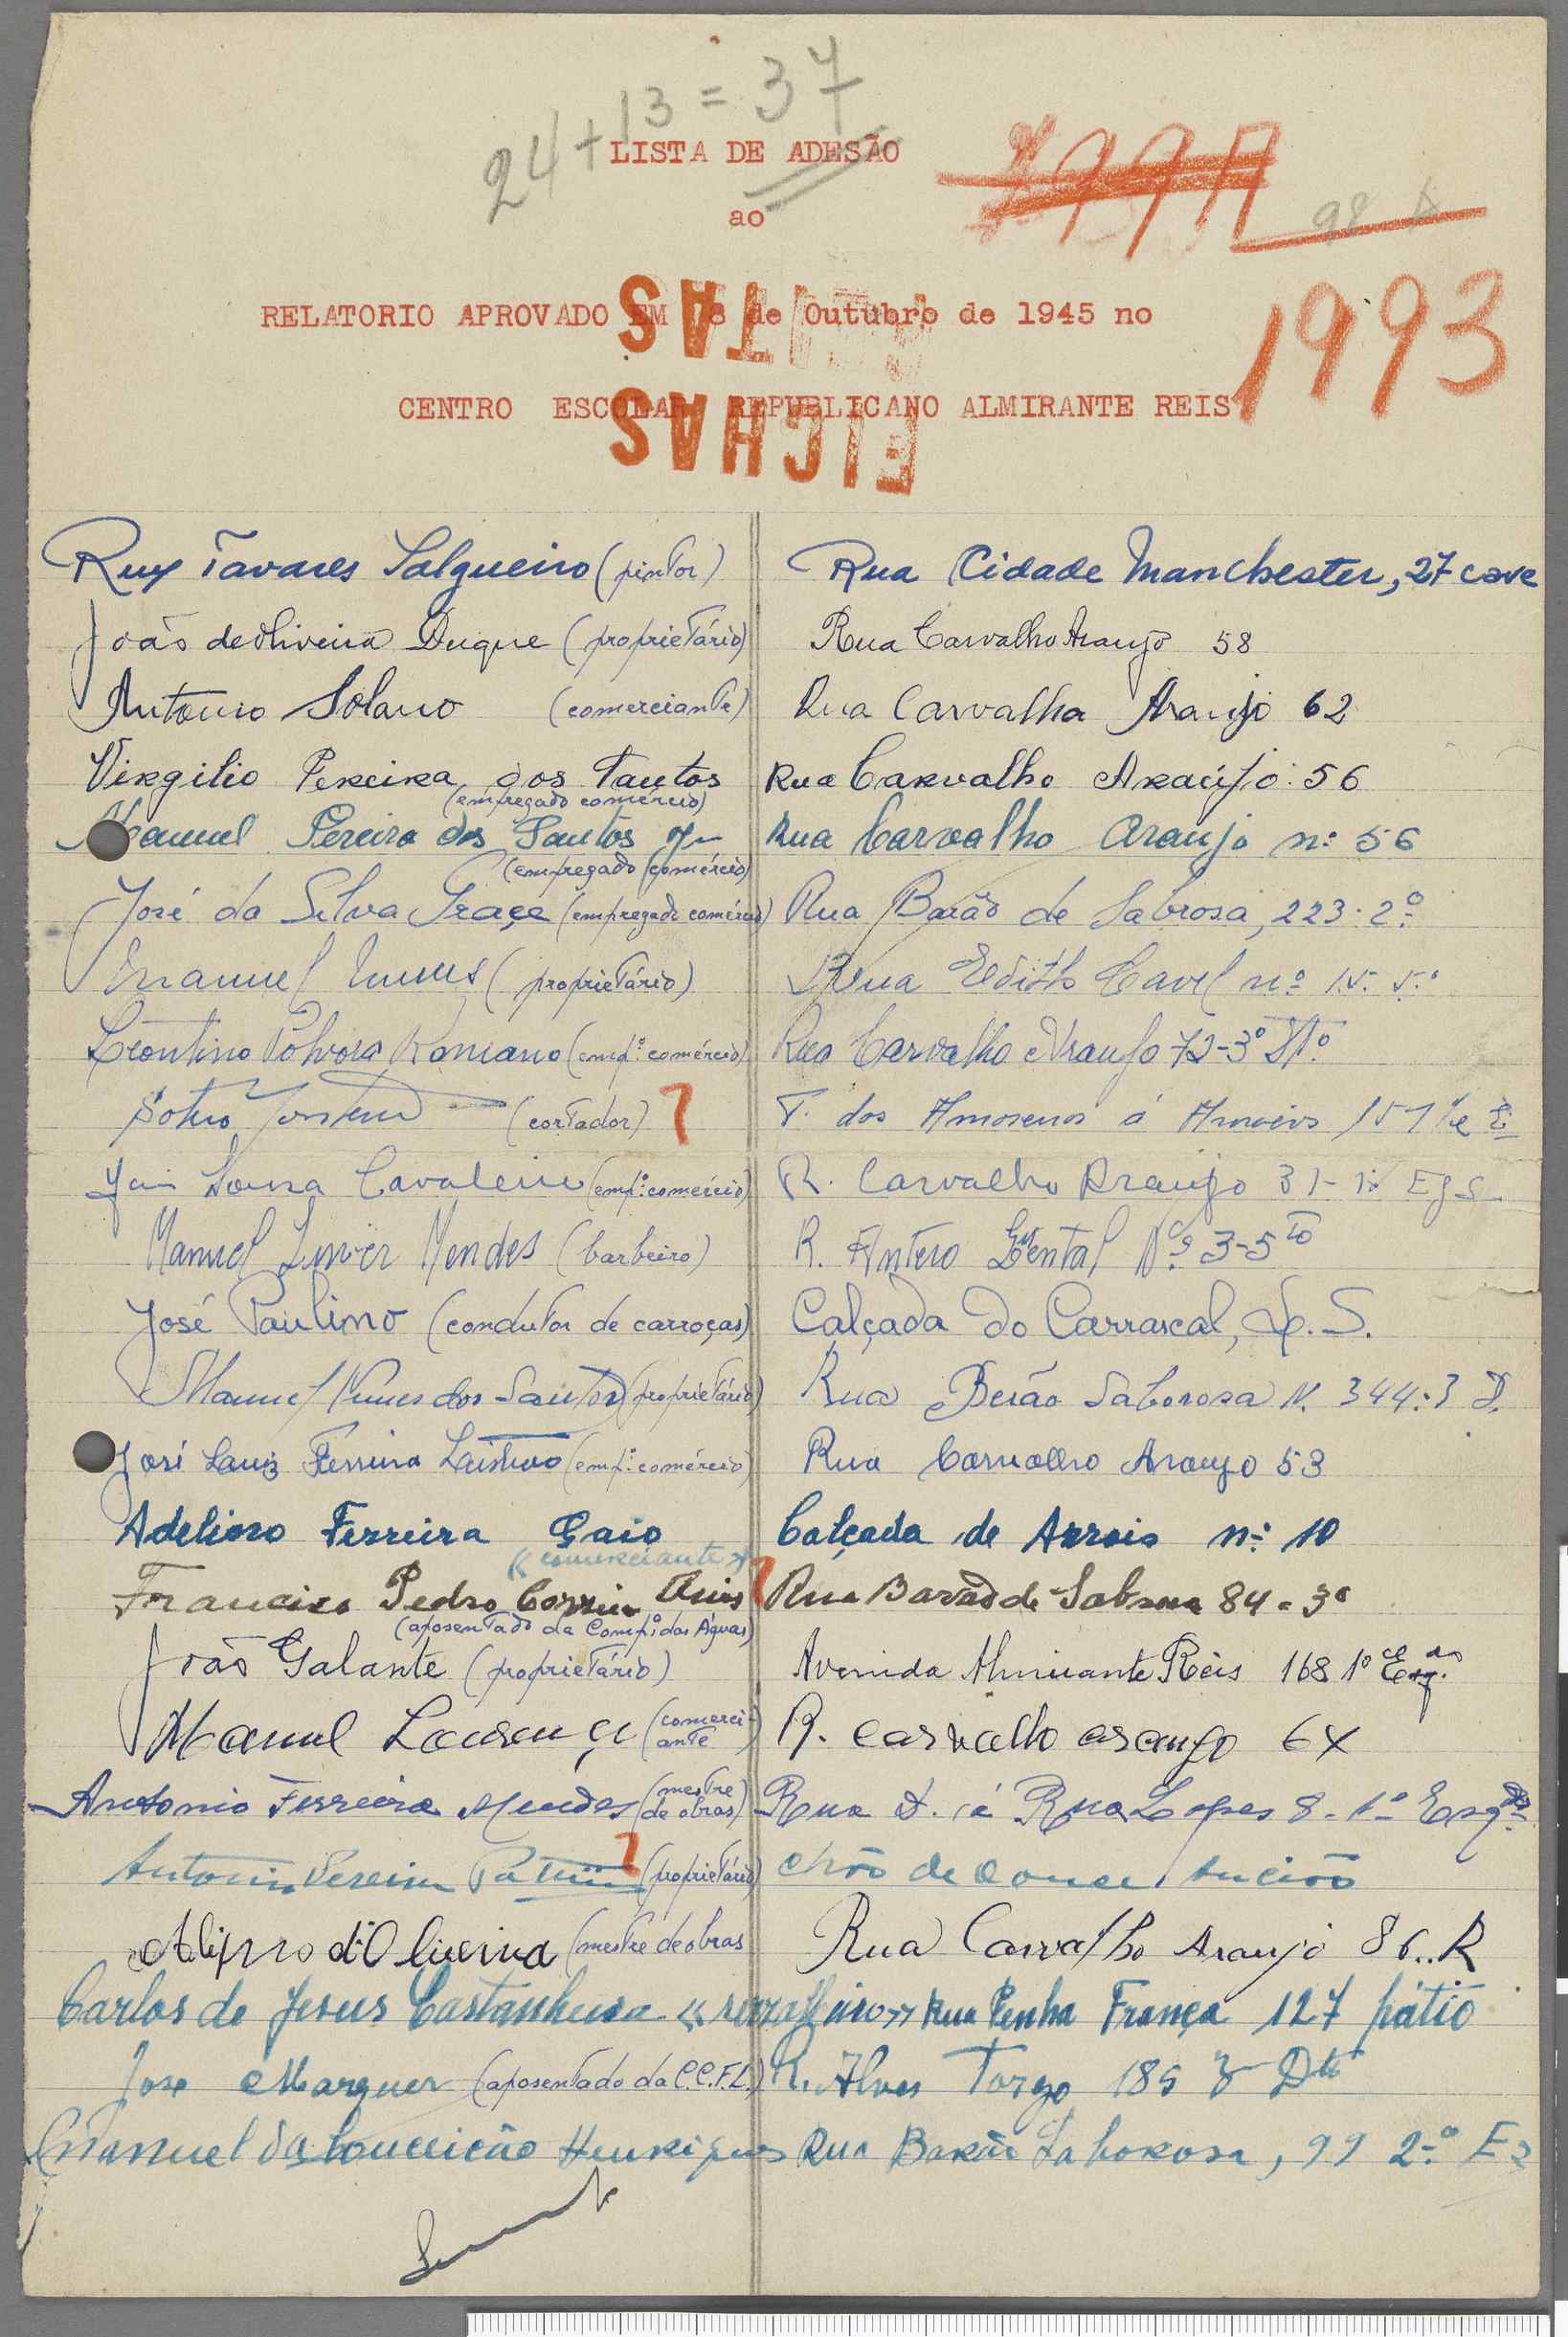 24 + 13 = 37
LISTA DE ADESÃO
98 A
ao
RELATORIO APROVADO EM 8 de Outubro de 1945 no
1993
CENTRO ESCOLAR REPUBLICANO ALMIRANTE REIS
FICHAS
Ruy Tavares Salgueiro (pintor) Rua Cidade Manchester, 27 cave
João de Oliveira Duque (proprietário) Rua Carvalho Araujo 58
Antonio Solano (comerciante) Rua Carvalha Araujo 62
Virgilio Pereira dos Santos Rua Carvalho Araújo 56
(empregado comércio)
Manuel Pereira dos Santos Jr Rua Carvalho Araujo nº 56
(empregado comércio)
José da Silva Graça (empregado comércio) Rua Barão de Sabrosa, 223-2º
Manuel Nunes (proprietário) Rua Edith Cavel nº 15-5º
Leontino Pólvora Romano (empº comércio) Rua Carvalho Araujo 72-3º Dtº
(cortador) T. dos Amorosos á
Sousa (empº comércio) R. Carvalho Araujo 31-1º Esq
Manuel Mendes (barbeiro) R. Antero Quental Nº 3-5to
José Paulino (condutor de carroças) Calçada do Carrascal, L. S.
Manuel Nunes dos Santos (proprietário) Rua Barão Saborosa N. 344-3 D.
José Luiz Ferreira (empº comércio) Rua Carvalho Araujo 53
Adelino Ferreira Gaio Calçada de Arrois nº 10
«comerciante»
Francisco Pedro Correia Rua Barão de Sabrosa 84-3º
(aposentado da Compª das Águas)
João Galante (proprietário) Avenida Almirante Reis 168 1º Esq.
Manuel Lourenço (comerciante) R. Carvalho Araujo 64
Antonio Ferreira Mendes (mestre de obras) Rua D. á Rua Lopes 8-1º Esqdo
Antonio Pereira (proprietário) Chão de Couce Ancião
Alipio d'Oliveira (mestre de obras Rua Carvalho Araujo 86..R
Carlos de Jesus Castanheira «serralheiro» Rua Penha França 127 pátio
Jose Marques (aposentado da C.C.F.L.) R. Alves Torgo 185 3 Dto
Manuel da Conceição Henriques Rua Barão Saborosa, 99 2º E